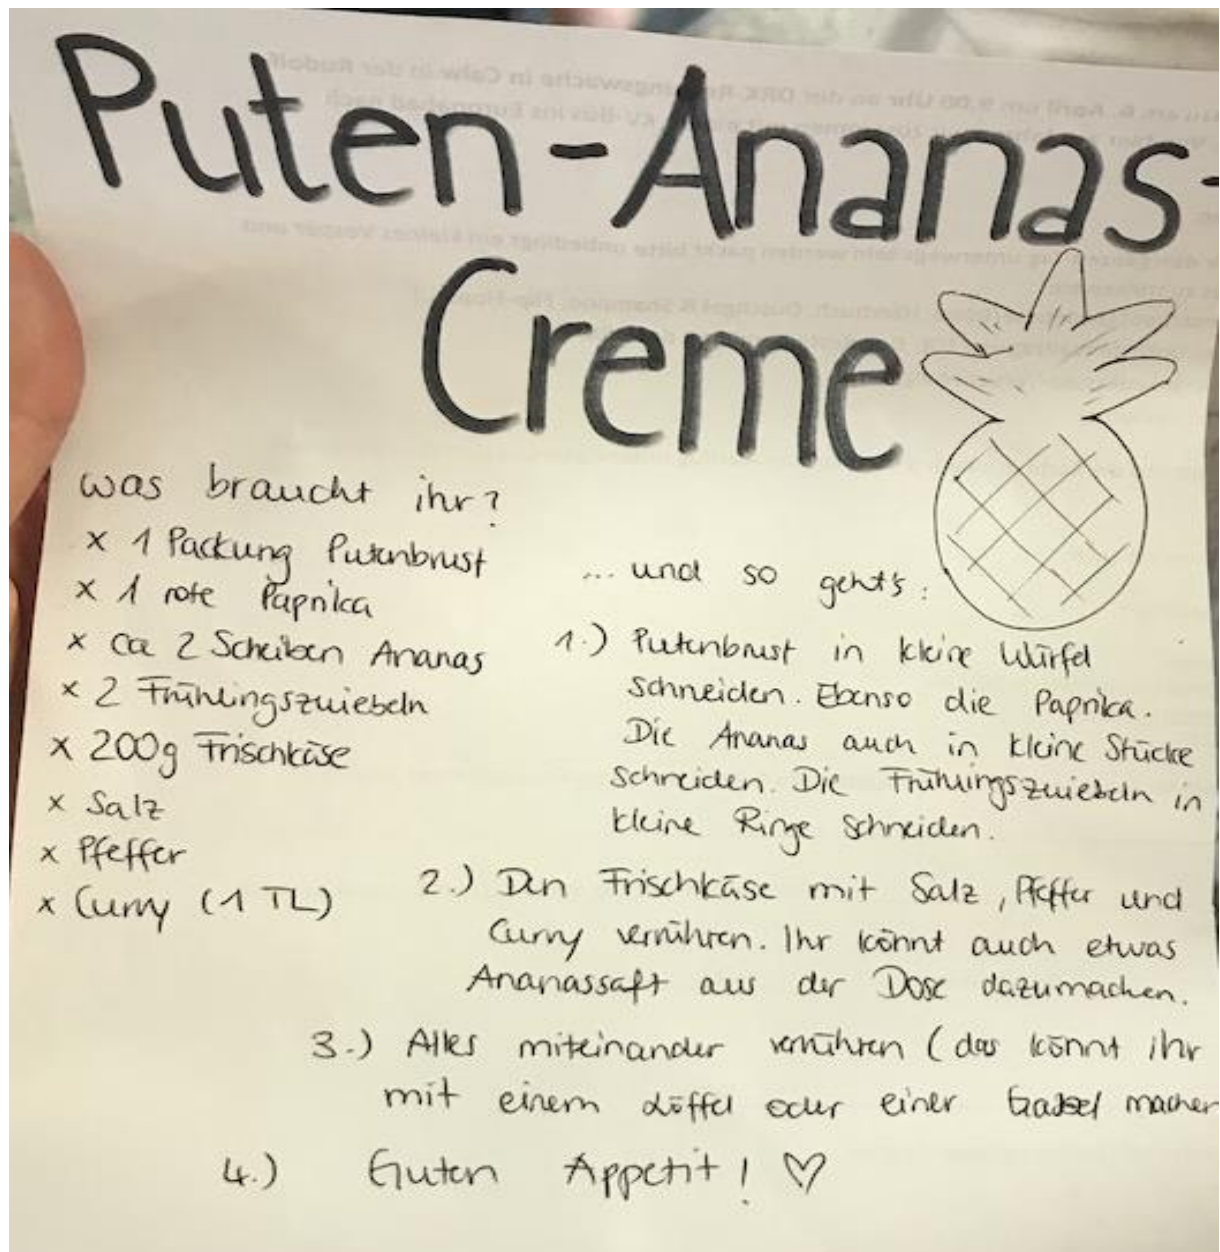 Puten-Ananas-
Creme
was braucht ihr?
x 1 Packung Putenbrust
x 1 rote Paprika
x ca 2 Scheiben Ananas
x 2 Frühlingszwiebeln
x 200g Frischkäse
x Salz
x Pfeffer
x Curry (1 TL)
... und so geht's:
1.) Putenbrust in kleine Würfel
schneiden. Ebenso die Paprika.
Die Ananas auch in kleine Stücke
schneiden. Die Frühlingszwiebeln in
kleine Ringe schneiden.
2.) Den Frischkäse mit Salz, Pfeffer und
Curry verrühren. Ihr könnt auch etwas
Ananassaft aus der Dose dazumachen.
3.) Alles miteinander verrühren (das könnt ihr
mit einem Löffel oder einer Gabel machen
4.) Guten Appetit! ♡